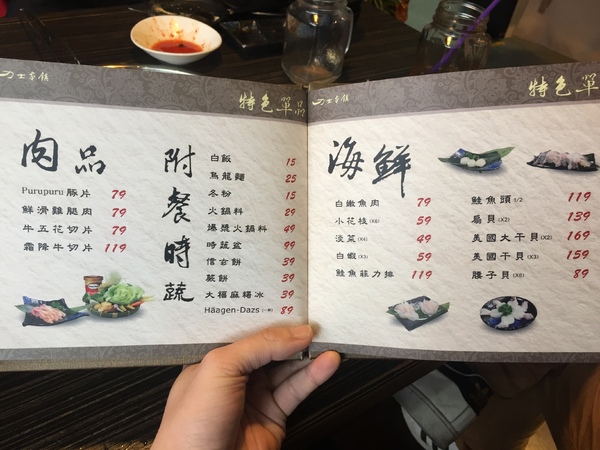 特色單品
肉品
Purupuru 豚片 79
鮮滑雞腿肉 79
牛五花切片 79
霜降牛切片 119
附餐時蔬
白飯 15
烏龍麵 25
冬粉 15
火鍋料 29
爆漿火鍋料 49
時蔬盆 99
信玄餅 39
蕨餅 39
大福麻糬冰 39
Häagen-Dazs 89
特色單
海鮮
白嫩魚肉 79
小花枝(X6) 59
淡菜(X4) 49
白蝦(X3) 59
鮭魚菲力排 119
鮭魚頭1/2 119
扇貝(X2) 139
美國大干貝(X2) 169
美國干貝(X3) 159
腰子貝(X6) 89